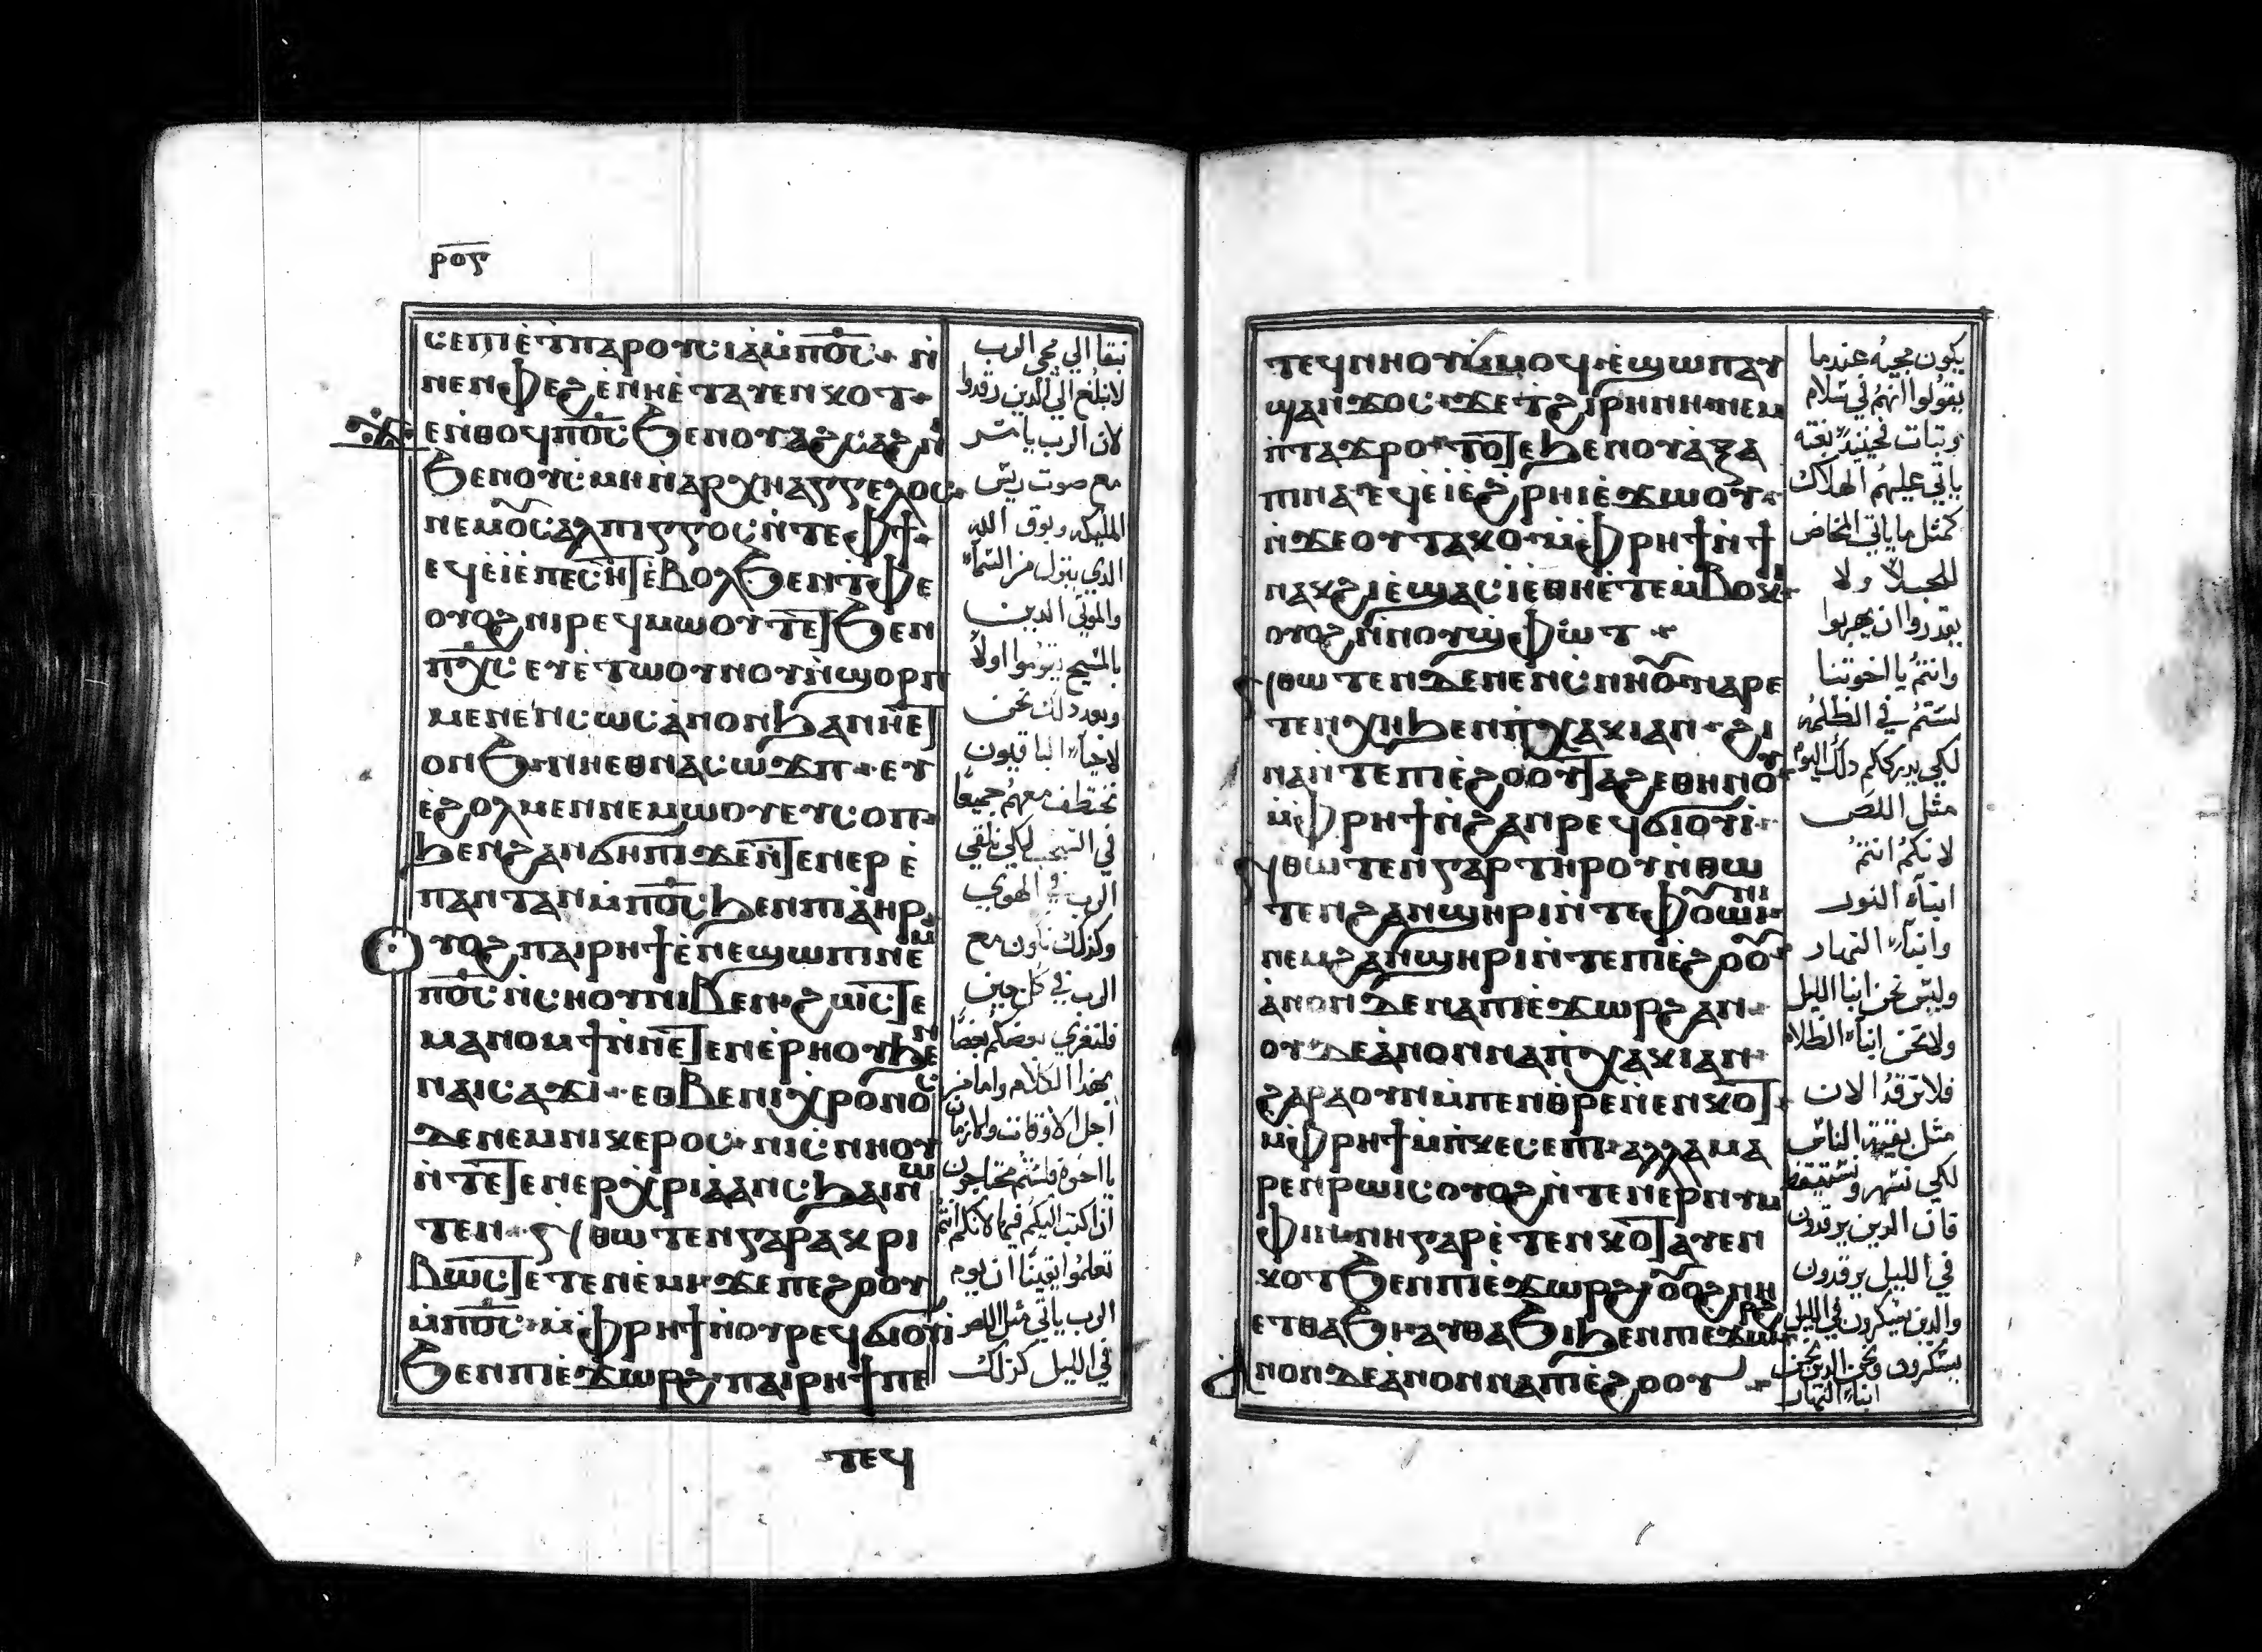 ⲣⲟⲋ
ⲥⲉⲡⲓⲉ̀ⲧⲡⲁⲣⲟⲩⲥⲓⲁ̀ⲙ̀ⲡⲟ̅ⲥ̅ ⲛ̀
ⲛⲉⲛⲫⲉϩⲉ̀ⲛⲏⲉ̀ⲧⲁⲩⲉⲛⲕⲟⲧ
ⲉⲛ̀ⲑⲟϥⲡⲟ̅ⲥ̅ϧⲉⲛⲟⲩⲁϩⲥⲁϩⲛⲓ
ϧⲉⲛⲟⲩⲥ̀ⲙⲏⲛ̀ⲁⲣⲭⲏⲁⲅⲅⲉⲗⲟⲥ
ⲛⲉⲙⲟⲩⲥⲁⲗⲡⲓⲅⲅⲟⲥⲛ̀ⲧⲉⲫϯ
ⲉϥⲉ̀ⲓⲉ̀ⲡⲉⲥⲏⲧⲉ̀ⲃⲟⲗϧⲉⲛⲧ̀ⲫⲉ
ⲟⲩⲟϩⲛⲓⲣⲉϥⲙⲱⲟⲩⲧⲉⲧϧⲉⲛ
ⲡⲭ̅ⲥ̅ⲉⲩⲉ̀ⲧⲱⲟⲩⲛⲟⲩⲛ̀ϣⲟⲣⲡ
ⲙⲉⲛⲉⲛⲥⲱⲥⲁ̀ⲛⲟⲛϧⲁⲛⲏⲉⲧ
ⲟⲛϧⲛⲏⲉⲑⲛⲁⲥⲱϫⲡ ⲉⲩ
ⲉ̀ϩⲟⲗⲙⲉⲛⲛⲉⲙⲱⲟⲩⲉⲩⲥⲟⲡ
ϧⲉⲛϩⲁⲛϭⲏⲡⲓϫⲉⲛ̀ⲧⲉⲛⲉⲣⲉ̀
ⲡⲁⲛⲧⲁⲛⲙ̀ⲡⲟ̅ⲥ̅ϧⲉⲛⲡⲓⲁ̀ⲏⲣ
ⲟⲩⲟϩⲡⲁⲓⲣⲏϯⲉ̀ⲛⲉϣⲱⲡⲓⲛⲉⲙ
ⲡⲟ̅ⲥ̅ⲛ̀ⲥⲏⲟⲩⲛⲓⲃⲉⲛ ϩⲱⲥⲧⲉ
ⲙⲁⲛⲟⲙϯⲛ̀ⲛⲉⲧⲉⲛⲉ̀ⲣⲏⲟⲩϧⲉⲛ
ⲛⲁⲓⲥⲁϫⲓ ⲉⲑⲃⲉⲛⲓⲭⲣⲟⲛⲟⲥ
ⲇⲉⲛⲉⲙⲛⲓⲕⲉⲣⲟⲥ ⲛⲓⲥ̀ⲛⲏⲟⲩ
ⲛ̀ⲧⲉⲧⲉⲛⲉⲣⲭⲣⲓⲁ̀ⲁⲛⲥ̀ϧⲁⲓⲛⲱ
ⲧⲉⲛ ⲛ̀ⲑⲱⲧⲉⲛⲅⲁⲣⲁⲕⲣⲓ
ⲃⲱⲥⲧⲉⲧⲉⲛⲉ̀ⲙⲓ ϫⲉⲡⲉϩⲟⲟⲩ
ⲙ̀ⲡⲟ̅ⲥ̅ ⲙ̀ⲫⲣⲏϯⲛ̀ⲟⲩⲣⲉϥϭⲓⲟⲩⲓ
ϧⲉⲛⲡⲓⲉ̀ϫⲱⲣϩ ⲡⲁⲓⲣⲏϯⲡⲉ
ⲧⲉϥ
نبقا الي مجي الرب
لا نبلغ الي الذين رقدوا
لان الرب يامر
مع صوت ريس
المليكه وبوق الله
الذي ينزل من السماء
والموتي الدين
بالمسيح يقوموا اولاً
وبعد ذلك نحن
لاحياء الباقيون
نختطف معهم جميعا
في السحب لكي نلتقي
الرب في الهوي
وكذلك نكون مع
الرب في كل حين
فلتعزي بعضكم بعضا
بهذا الكلام واما من
اجل الاوقات والازمان
يا اخوة فلستم محتاجون
ان اكتب اليكم فيها لانكم انتم
تعلموا يقينا ان يوم
الرب ياتي مثل اللص
في الليل كذلك
ⲧⲉϥⲛⲏⲟⲩⲙ̀ⲙⲟϥ ⲉ̀ϣⲱⲡⲁⲩ
ϣⲁⲛϫⲟⲥ ϫⲉⲧϩⲓⲣⲏⲛⲏ ⲛⲉⲙ
ⲛ̀ⲧⲁϫⲣⲟ ⲧⲟⲧⲉϧⲉⲛⲟⲩⲁ̀ⲝⲁ
ⲡⲓⲛⲁⲉϥⲉ̀ⲓⲉ̀ϩⲣⲏⲓⲉ̀ϫⲱⲟⲩ
ⲛ̀ϫⲉⲟⲩⲧⲁⲕⲟ ⲙ̀ⲫⲣⲏϯⲛ̀ϯ
ⲛⲁⲕϩⲓⲉ̀ϣⲁⲥⲓⲉ̀ⲑⲏⲉ̀ⲧⲉⲙⲃⲟⲕⲓ
ⲟⲩⲟϩⲛ̀ⲛⲟⲩϣⲫⲱⲧ
ⲛ̀ⲑⲱⲧⲉⲛⲇⲉⲛⲉⲛⲥ̀ⲛⲏⲟⲩ ⲛⲁⲣⲉ
ⲧⲉⲛⲭⲏϧⲉⲛⲡ̀ⲭⲁⲕⲓⲁⲛ ϩⲓ
ⲛⲁⲛ̀ⲧⲉⲡⲓⲉ̀ϩⲟⲟⲩⲧⲁϩⲉⲑⲏⲛⲟⲩ
ⲙ̀ⲫⲣⲏϯⲛ̀ϩⲁⲛⲣⲉϥϭⲓⲟⲩⲓ
ⲛ̀ⲑⲱⲧⲉⲛⲅⲁⲣⲧⲏⲣⲟⲩⲛ̀ⲑⲱ
ⲧⲉⲛϩⲁⲛϣⲏⲣⲓⲛ̀ⲧⲉⲫⲟⲩⲱⲓⲛⲓ
ⲛⲉⲙϩⲁⲛϣⲏⲣⲓⲛ̀ⲧⲉⲡⲓⲉ̀ϩⲟⲟⲩ
ⲁ̀ⲛⲟⲛⲇⲉⲛⲁⲡⲓⲉ̀ϫⲱⲣϩⲁⲛ
ⲟⲩⲇⲉⲁ̀ⲛⲟⲛⲛⲁⲡ̀ⲭⲁⲕⲓⲁⲛ
ϩⲁⲣⲁⲟⲩⲛⲙ̀ⲡⲉⲛⲑ̀ⲣⲉⲛⲉⲛⲕⲟⲧ
ⲙ̀ⲫⲣⲏϯⲙ̀ⲡ̀ⲕⲉⲥⲉⲡⲓ ⲁⲗⲗⲁⲙⲁ
ⲣⲉⲛⲣⲱⲓⲥⲟⲩⲟϩⲛ̀ⲧⲉⲛⲉⲣⲛⲩⲙ
ⲫⲓⲛ ⲛⲏⲅⲁⲣⲉ̀ⲧⲉⲛⲕⲟⲧⲁⲩⲉⲛ
ⲕⲟⲧϧⲉⲛⲡⲓⲉ̀ϫⲱⲣϩ ⲟⲩⲟϩⲛⲏ
ⲉⲧⲑⲁϧⲓⲁⲩⲑⲁϧⲓϧⲉⲛⲡⲓⲉ̀ϫⲱⲣϩ
ⲁ̀ⲛⲟⲛⲇⲉⲁ̀ⲛⲟⲛⲛⲁⲡⲓⲉ̀ϩⲟⲟⲩ
يكون مجيه عندما
يقولوا انهم في سلام
وثبات فحينيذ بغته
ياتي عليهم الهلاك
كمثل ما ياتي المخاض
للحبلا ولا
يقدروا ان يهربوا
وانتم يا اخوتنا
لستم في الظلمه
لكي يدرككم ذلك اليوم
مثل اللص
لانكم انتم
ابناء النور
وابناء النهار
وليس نحن ابنا الليل
ولا نحن ابناء الظلام
فلا نرقد الان
مثل بقية الناس
لكي نسهر ونستيقظ
فان الدين يرقدون
في الليل يرقدون
والذين يسكرون في الليل
يسكرون ونحن الذين نحن
ابناء النهار